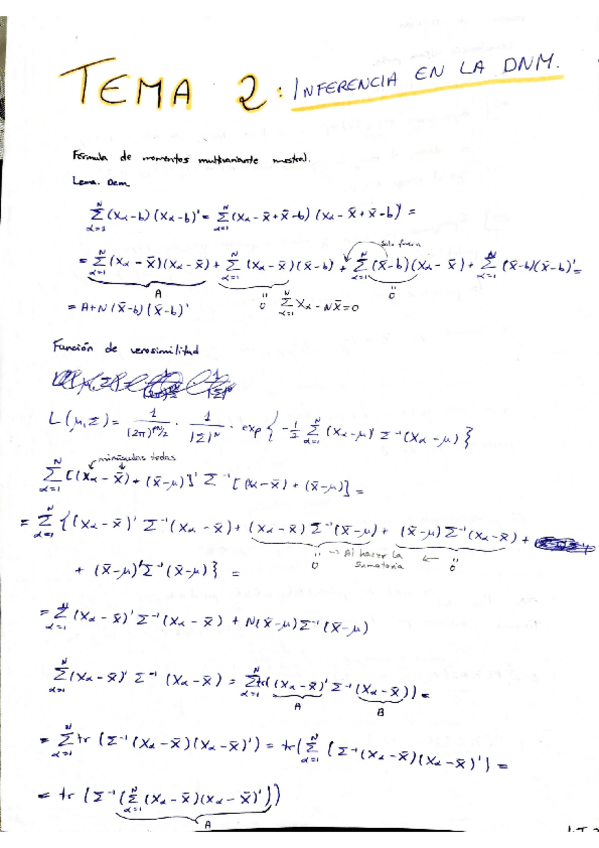 TEMA 2: INFERENCIA EN LA DNM.
Fórmula de momentos multivariante muestral.
Lema. Dem
∑_{α=1}^{N} (Xα-b)(Xα-b)' = ∑_{α=1}^{N} (Xα-x̄+x̄-b)(Xα-x̄+x̄-b)' =
Sale fuera
= ∑_{α=1}^{N} (Xα-x̄)(Xα-x̄) + ∑_{α=1}^{N} (Xα-x̄)(x̄-b) + ∑_{α=1}^{N} (x̄-b)(Xα-x̄) + ∑_{α=1}^{N} (x̄-b)(x̄-b)' =
A = 0 ∑_{α=1}^{N} Xα - Nx̄ = 0 = 0
= A+N(x̄-b)(x̄-b)'
Función de verosimilitud
L(μ,Σ) = 1/(2π)^{pN/2} · 1/|Σ|^N · exp{-1/2 ∑_{α=1}^{N} (Xα-μ)' Σ⁻¹(Xα-μ)}
minúsculas todas
∑_{α=1}^{N} [(Xα-x̄)+(x̄-μ)]' Σ⁻¹ [(Xα-x̄)+(x̄-μ)] =
= ∑_{α=1}^{N} {(Xα-x̄)' Σ⁻¹(Xα-x̄) + (Xα-x̄)Σ⁻¹(x̄-μ) + (x̄-μ)Σ⁻¹(Xα-x̄) +
= 0 → Al hacer la sumatoria ← = 0
+ (x̄-μ)'Σ⁻¹(x̄-μ)} =
= ∑_{α=1}^{N} (Xα-x̄)' Σ⁻¹(Xα-x̄) + N(x̄-μ)Σ⁻¹(x̄-μ)
∑_{α=1}^{N} (Xα-x̄)' Σ⁻¹(Xα-x̄) = ∑_{α=1}^{N} tr((Xα-x̄)' Σ⁻¹(Xα-x̄)) =
A B
= ∑_{α=1}^{N} tr(Σ⁻¹(Xα-x̄)(Xα-x̄)') = tr(∑_{α=1}^{N} (Σ⁻¹(Xα-x̄)(Xα-x̄)') =
= tr(Σ⁻¹(∑_{α=1}^{N} (Xα-x̄)(Xα-x̄)'))
A